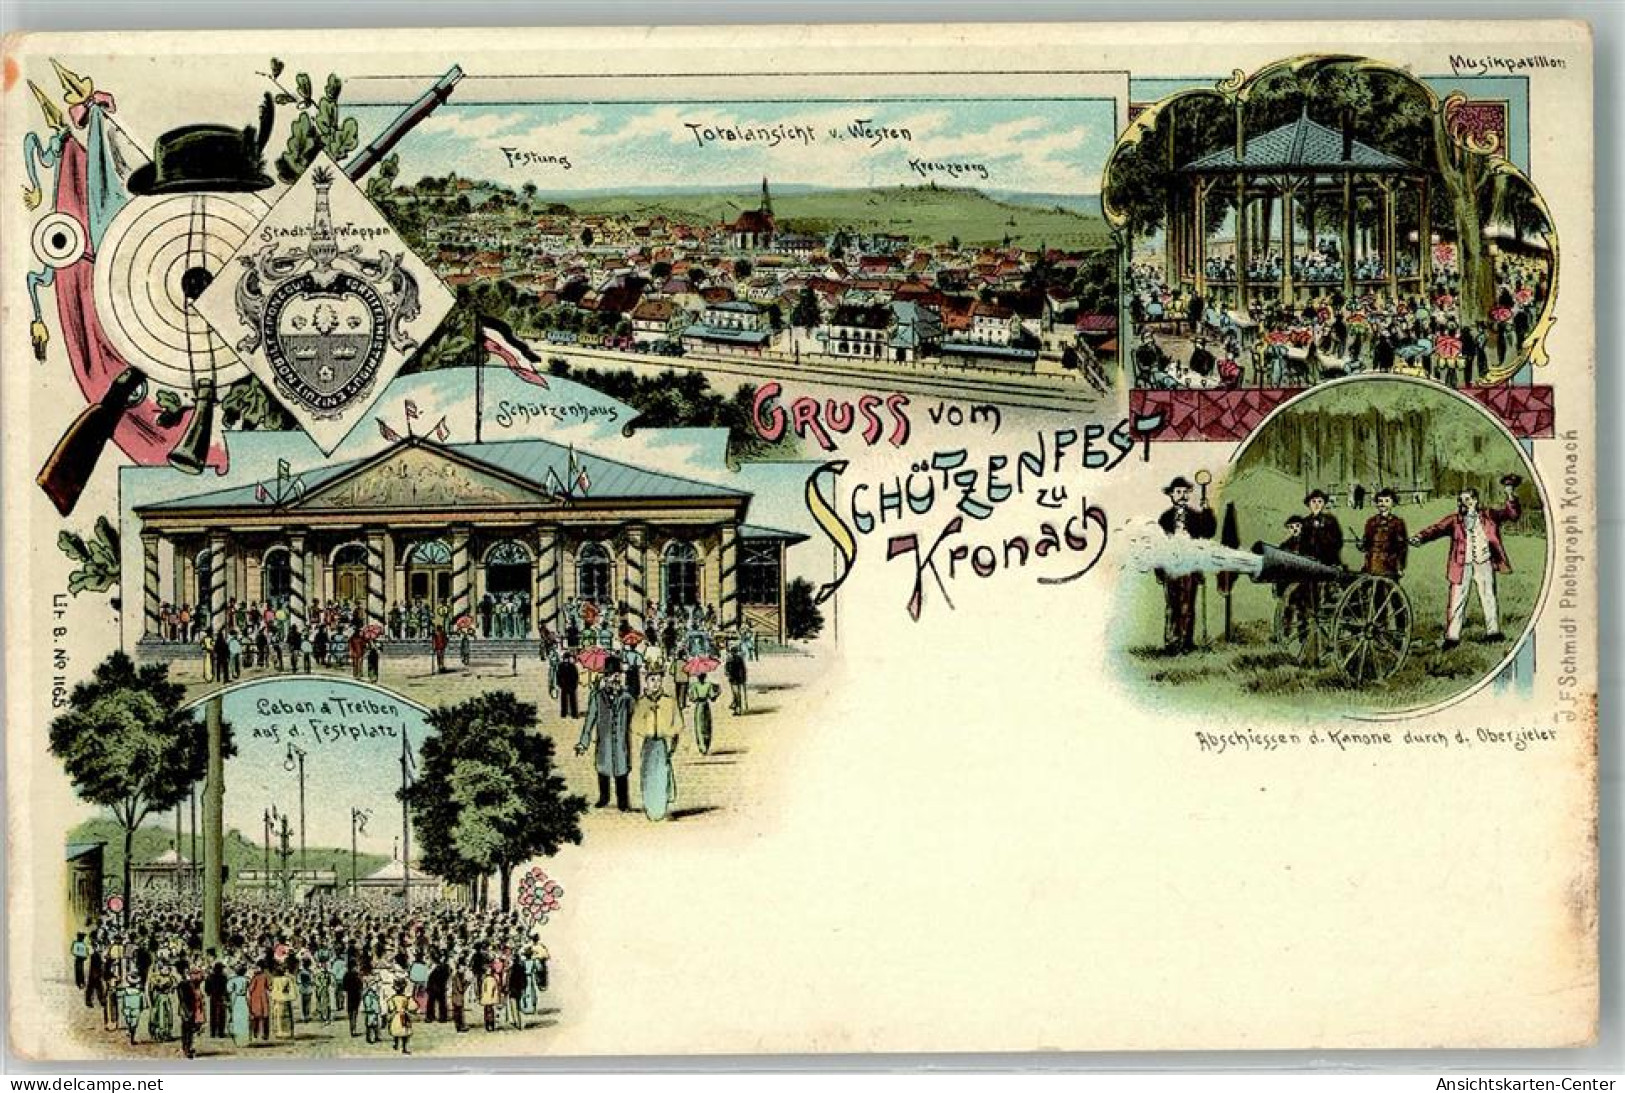 Musikpavillon
Totalansicht v. Westen
Festung
Kreuzberg
Stadt-Wappen
Schützenhaus
GRUSS vom
SCHÜTZENFEST
zu
Kronach
J. F. Schmidt Photograph Kronach
Lit. B. No 1165
Leben & Treiben
auf d. Festplatz
Abschiessen d. Kanone durch d. Oberzieler
delcampe.net
Ansichtskarten-Center